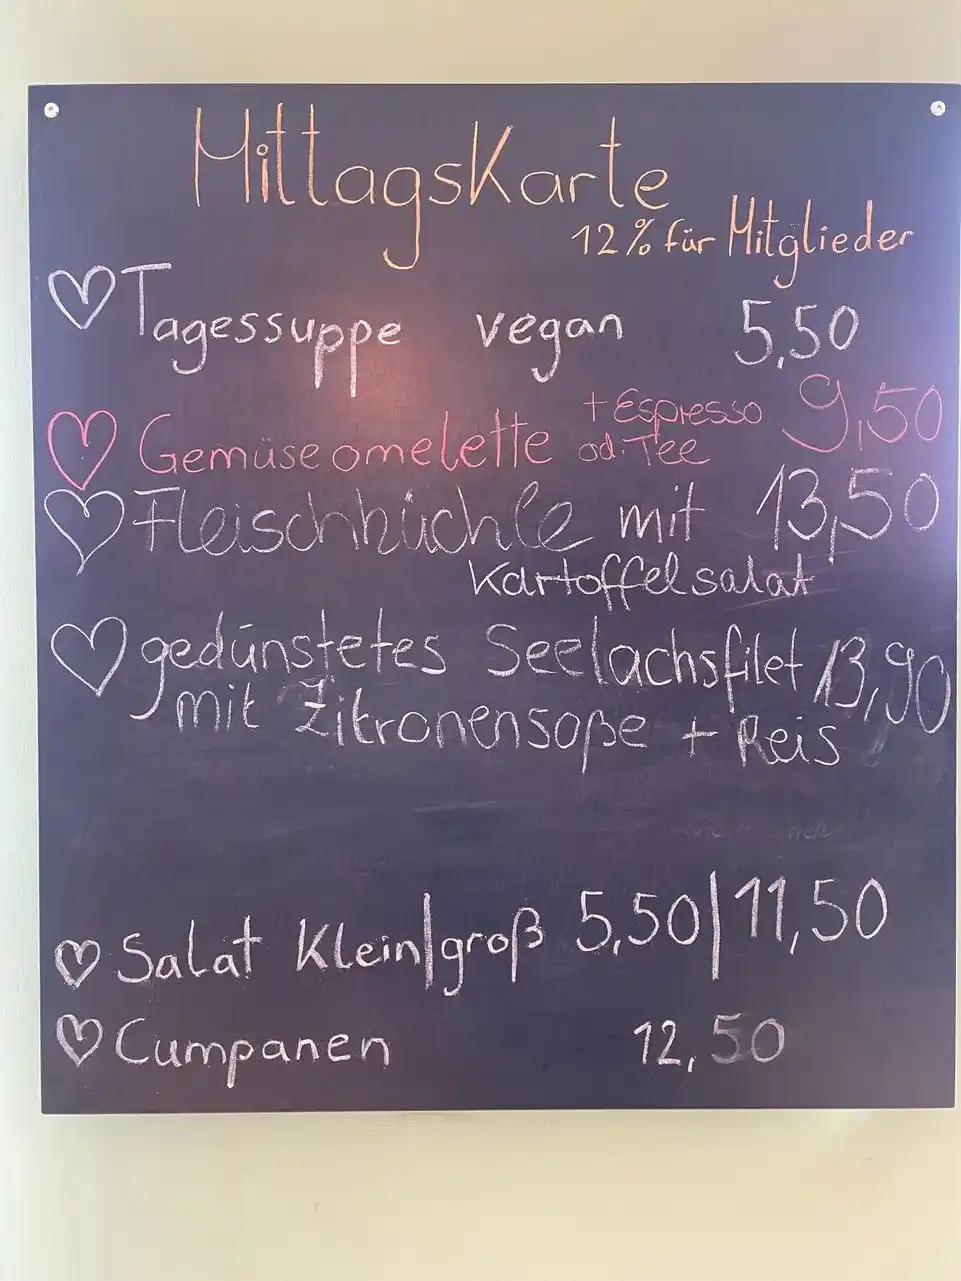 Mittagskarte
12% für Mitglieder
Tagessuppe vegan 5,50
Gemüseomelette + Espresso od. Tee 9,50
Fleischküchle mit 13,50
Kartoffelsalat
gedünstetes Seelachsfilet 13,90
mit Zitronensoße + Reis
Salat Klein|groß 5,50|11,50
Cumpanen 12,50